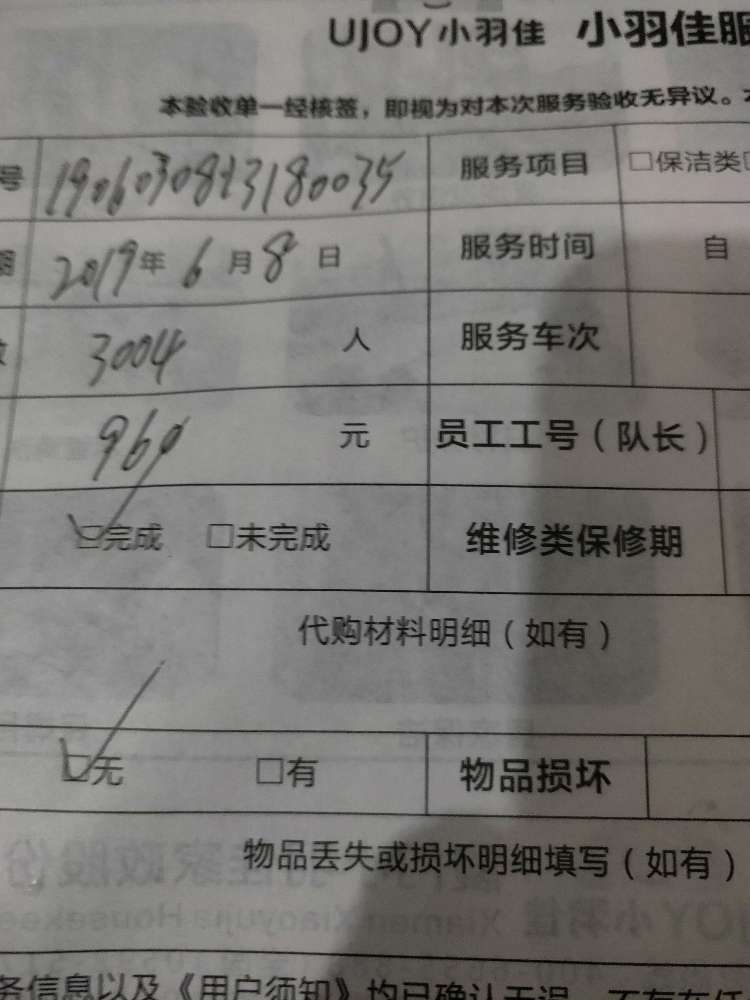 UJOY小羽佳 小羽佳服
本验收单一经核签，即视为对本次服务验收无异议。本
号 1906030813180035 服务项目 □保洁类□
期 2019年 6 月 8 日 服务时间 自
数 3004 人 服务车次
960 元 员工工号（队长）
☑完成 □未完成 维修类保修期
代购材料明细（如有）
☑无 □有 物品损坏
物品丢失或损坏明细填写（如有）
务信息以及《用户须知》均已确认无误，不存在任